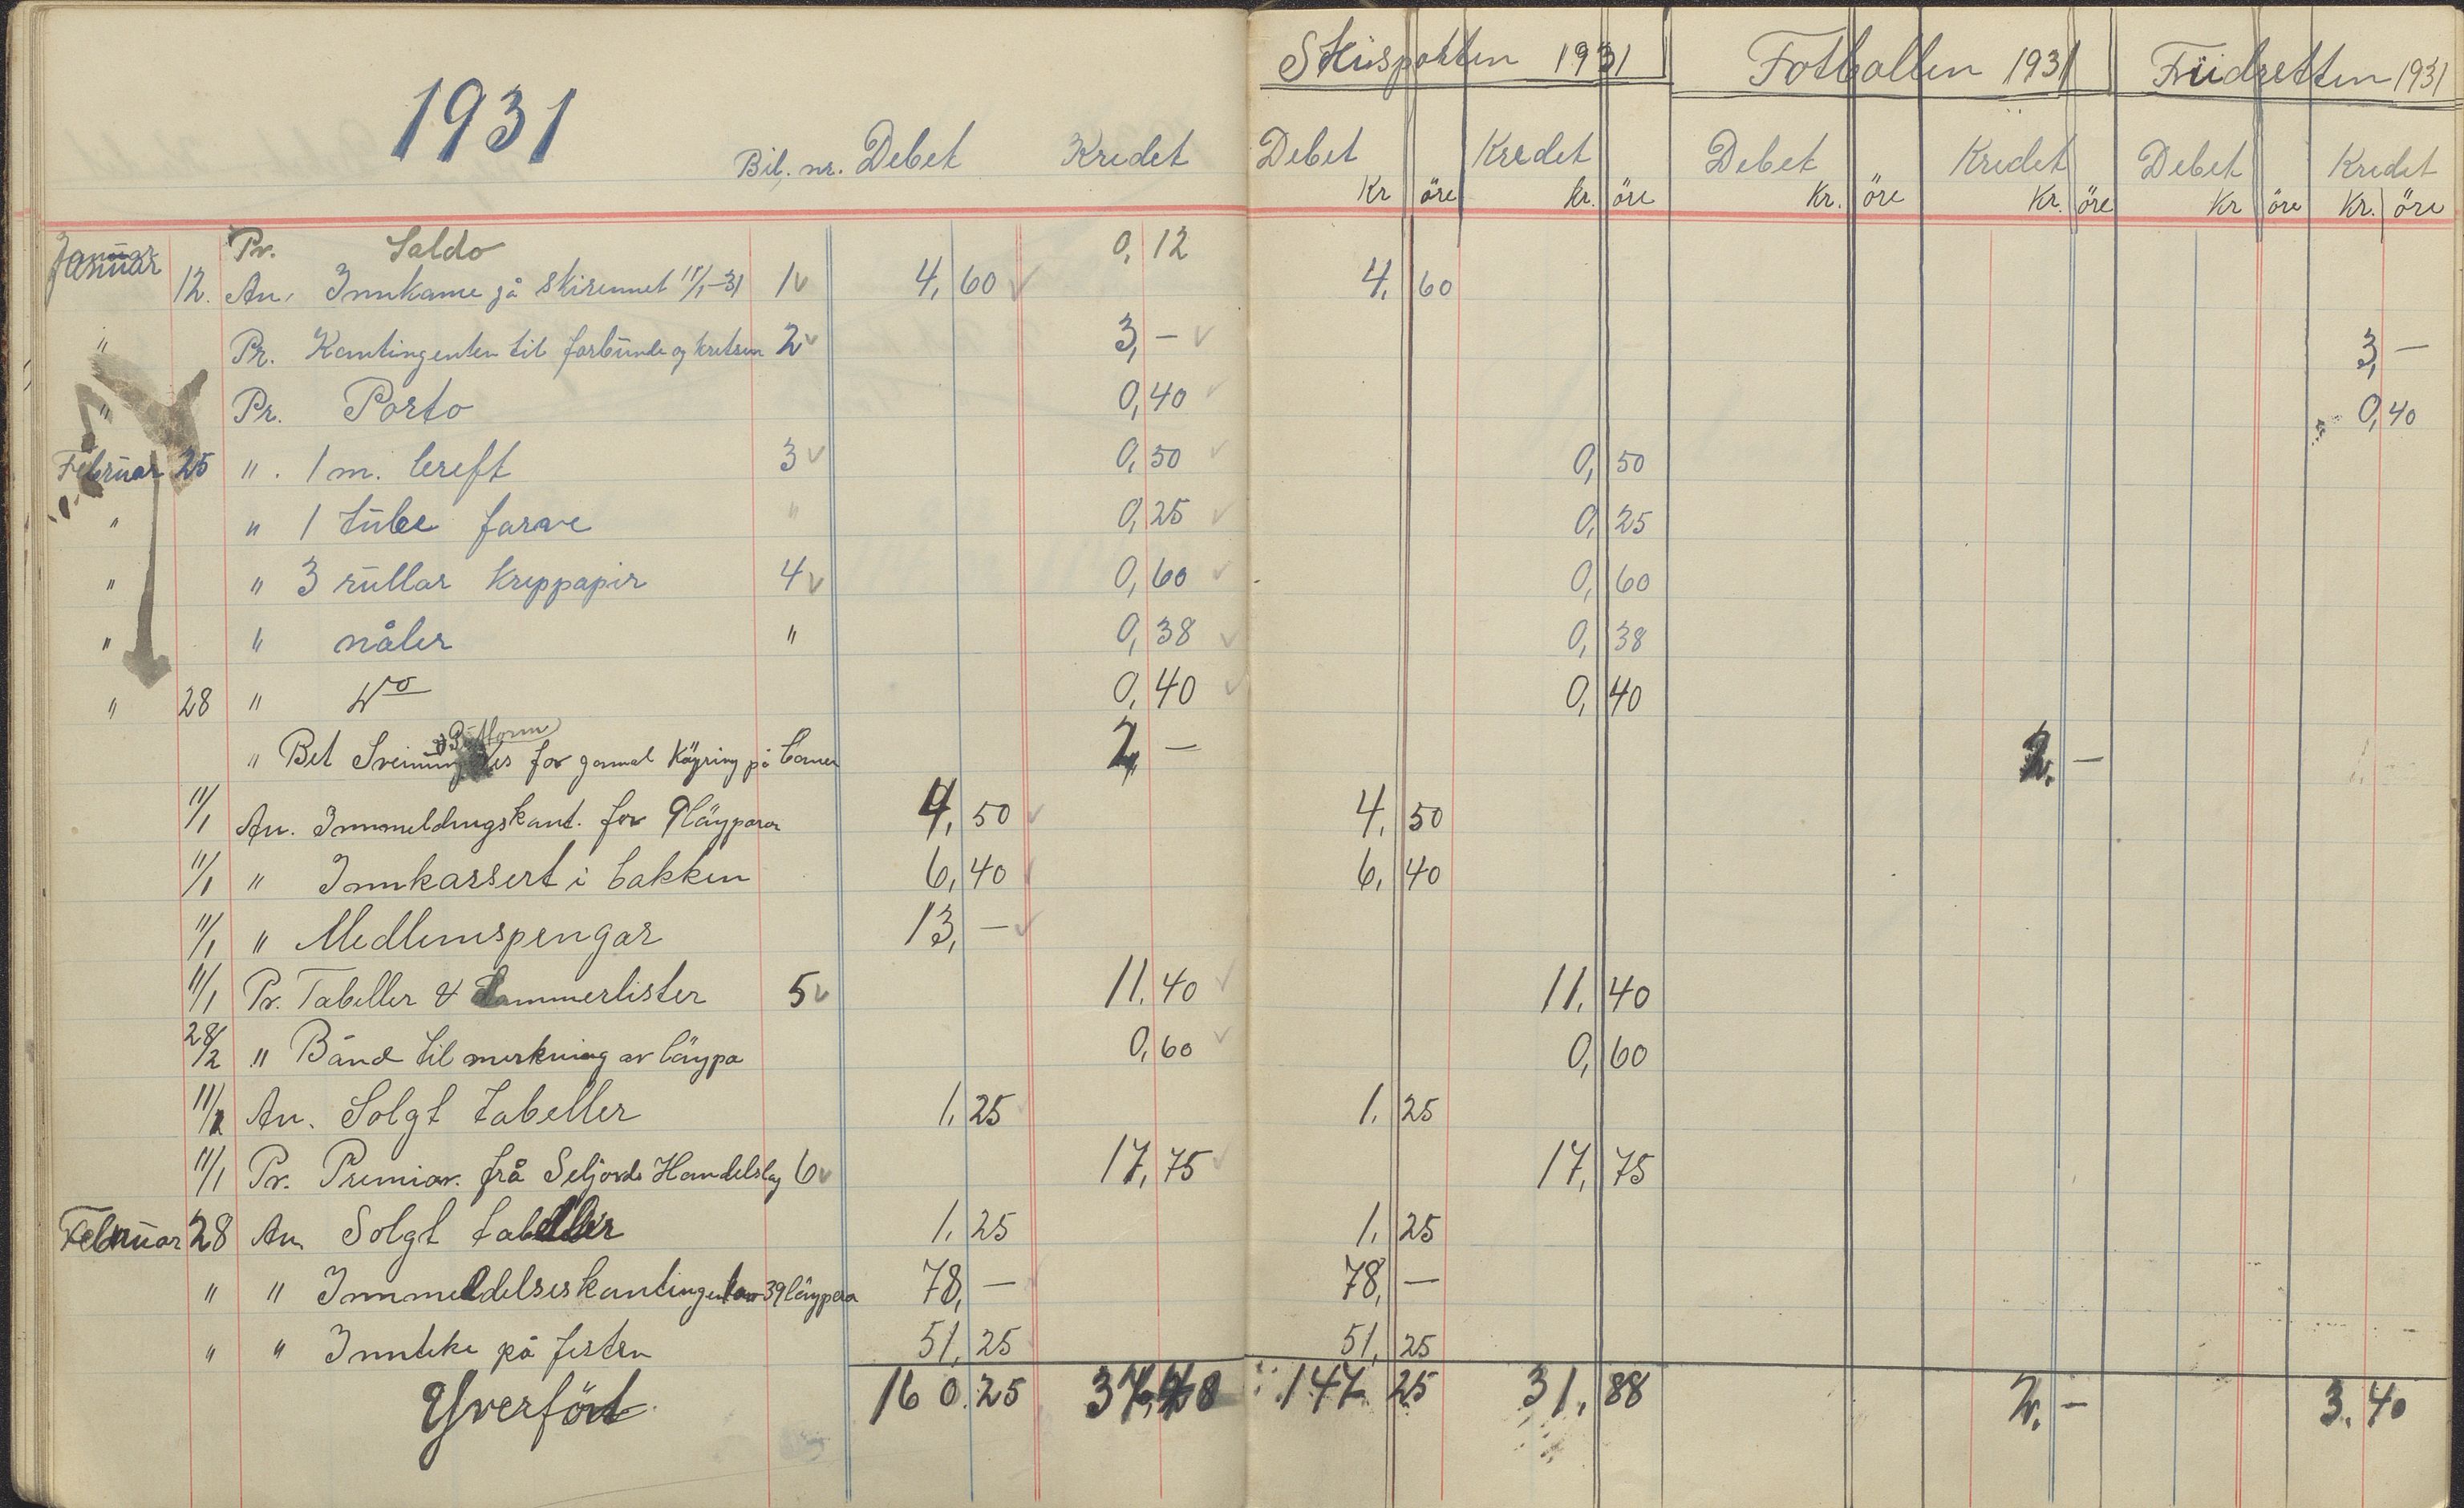 Skisporten 1931 Fotballen 1931 Friidretten 1931
1931
Bil. nr. Debet Kredet Debet Kredet Debet Kredet Debet Kredet
Kr öre Kr. öre Kr. öre Kr. öre Kr öre Kr. öre
Januar Pr. Saldo 0,12
12. An. Innkome på skirennet 11/1-31 1 4,60 4,60
" Pr. Kontingenten til forbunde og kretsen 2 3,— 3,—
" Pr. Porto 0,40 0,40
Februar 25 " 1 m. lereft 3 0,50 0,50
" " 1 tube farve " 0,25 0,25
" " 3 rullar kreppapir 4 0,60 0,60
" " nåler " 0,38 0,38
" 28 " Do 0,40 0,40
" Bet Sveinung for gamal köyring på 2,— 2,—
11/1 An. Innmeldingskont. for 9 löyparar 4,50 4,50
11/1 " Innkassert i bakken 6,40 6,40
11/1 " Medlemspengar 13,—
11/1 Pr. Tabeller & Dommerlister 5 11,40 11,40
28/2 " Bånd til merkning av löypa 0,60 0,60
11/1 An. Solgt tabeller 1,25 1,25
11/1 Pr. Premiar frå Seljords Handelslag 6 17,75 17,75
Februar 28 An. Solgt tabeller 1,25 1,25
" " Innmeldelseskontingent av 39 löypera 78,— 78,—
" " Inntekt på festen 51,25 51,25
Yverfört 160.25 147 25 31,88 2.- 3.40